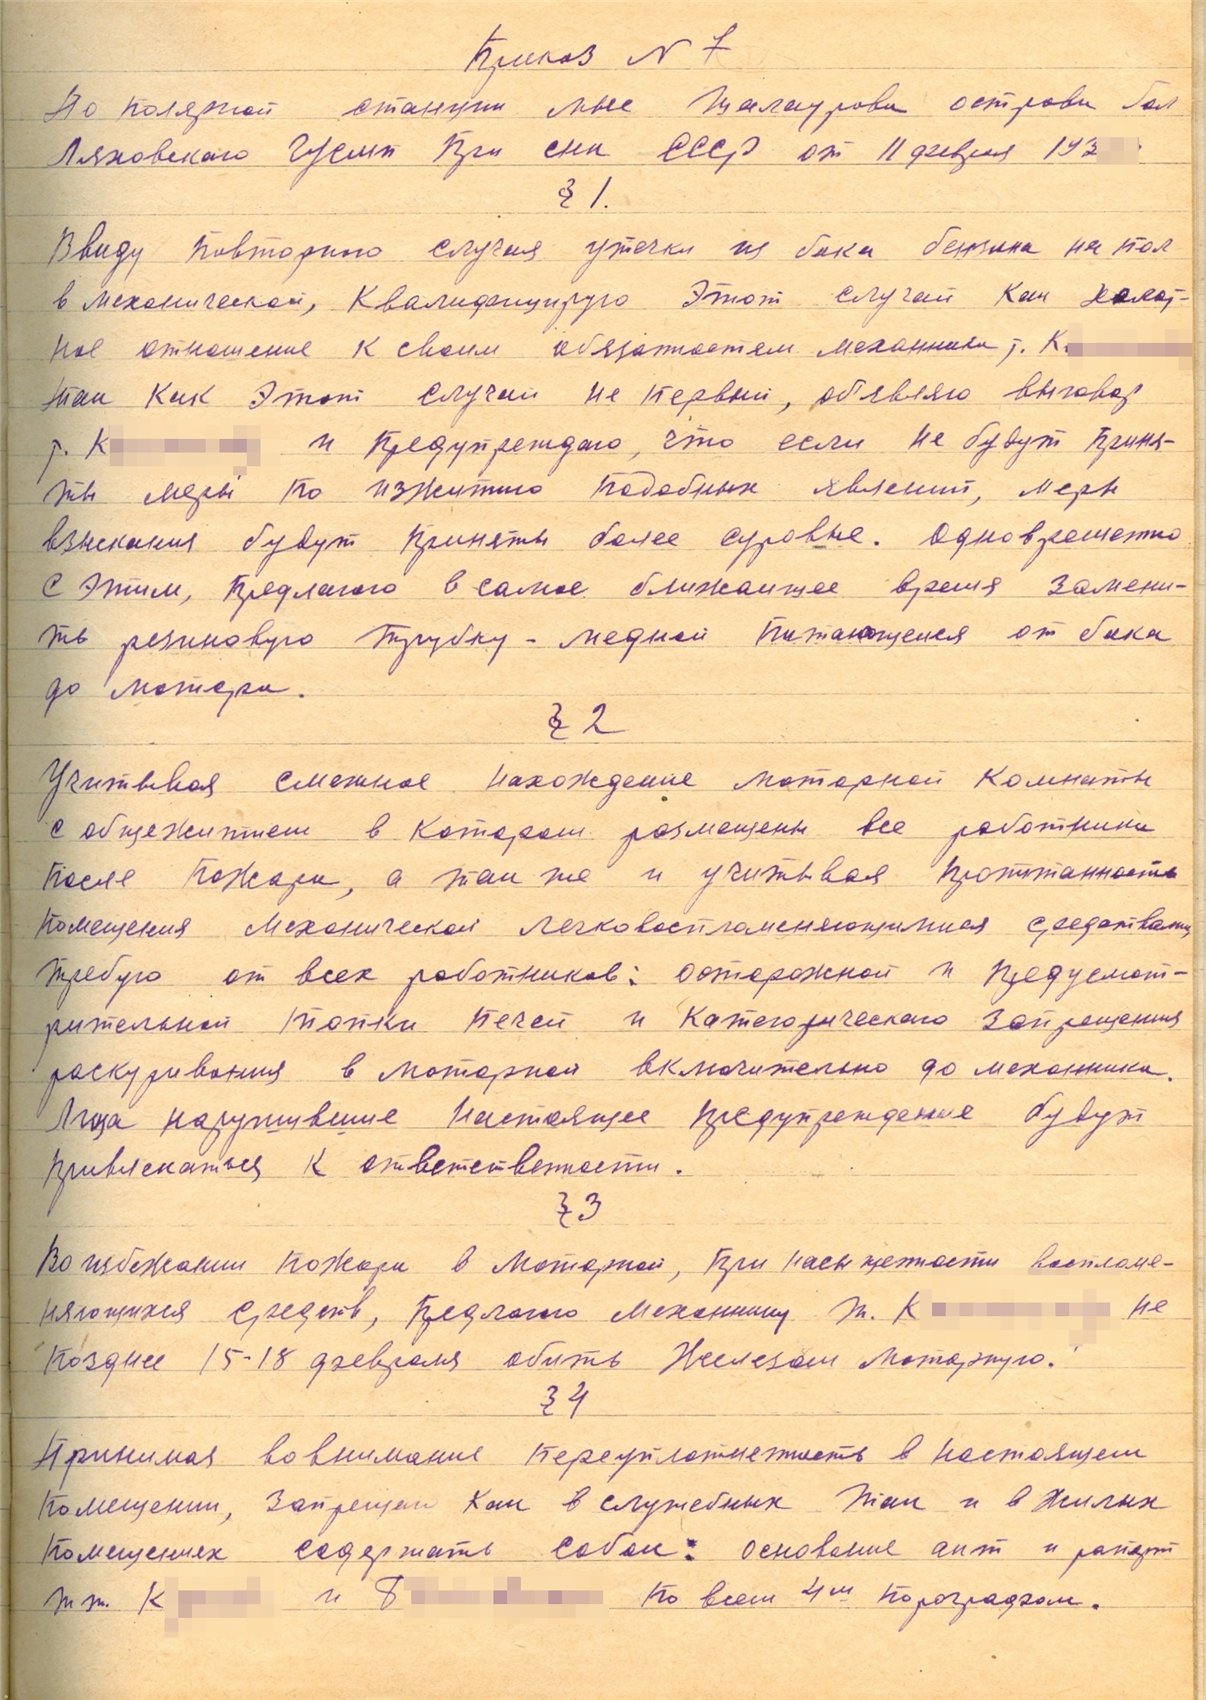 Приказ N 7
По полярной станции мыс Шалаурова острова бол
Ляховского ГУСМП при СНК СССР от 11 февраля 193
§ 1.
Ввиду повторного случая утечки из бака бензина на пол
в механической, квалифицирую этот случай как халат-
ное отношение к своим обязаностям механика т. К.
так как этот случай не первый, объявляю выговор
т. К и предупреждаю, что если не будут приня-
ты меры по изжитию подобных явлений, меры
взыскания будут приняты более суровые. Одновременно
с этим, предлагаю в самое ближайщее время замени-
ть резиновую трубку - медной питающейся от бака
до мотора.
§ 2
Учитывая смежное нахождение моторной комнаты
с общежитием в котором размещены все работники
после пожара, а так же и учитывая пропитанность
помещения механической легковоспламеняющимися средствами
требую от всех работников: осторожной и предусмот-
рительной топки печей и категорического запрещения
раскуривания в моторной включительно до механика.
Лица нарушившие настоящее предупреждение будут
привлекаться к ответственности.
§ 3
Во избежании пожара в моторной, при насыщенности воспламе-
няющихся средств, предлагаю механнику т. К не
позднее 15-18 февраля обить железом моторную.
§ 4
Принимая во внимание переуплотненность в настоящем
помещении, запрещаю как в служебных так и в жилых
помещениях содержать собак: основание акт и рапорт
т.т. К и Б по всем 4м пороградом.